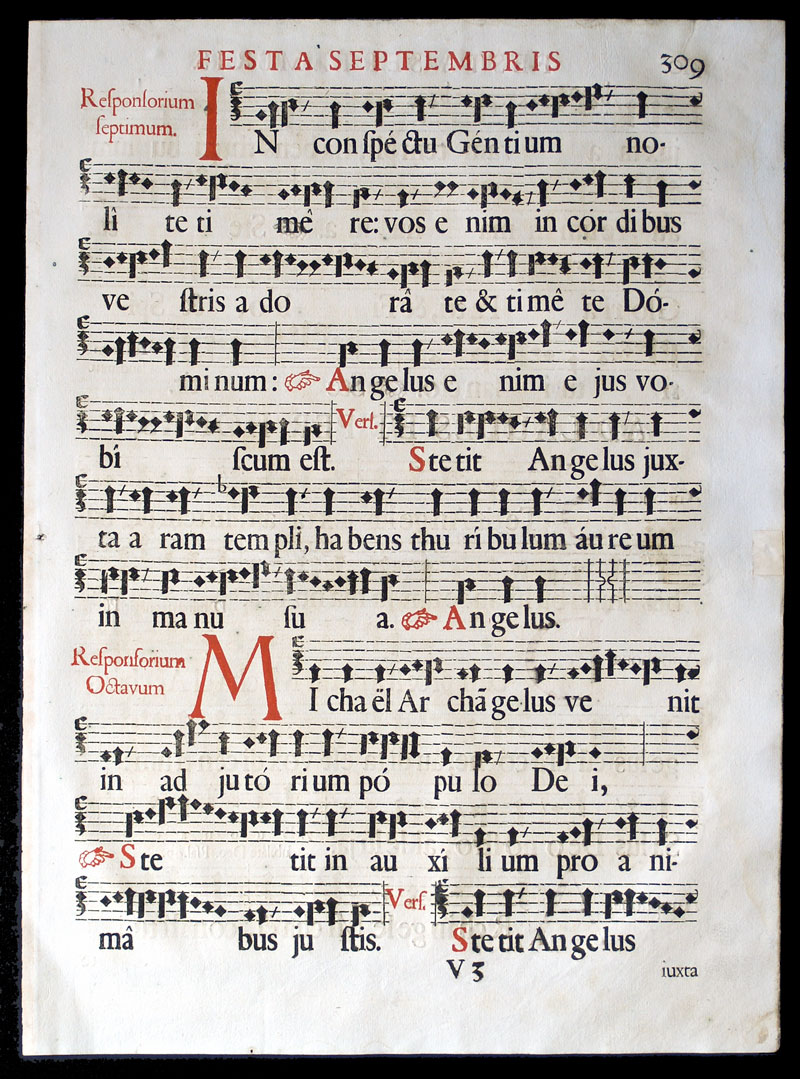 FESTA SEPTEMBRIS 309
Reſponſorium
ſeptimum.
IN con ſpé ctu Gén ti um no-
lî te ti mê re: vos e nim in cor di bus
ve ſtris a do râ te & ti mê te Dó-
mi num: ☞ An ge lus e nim e jus vo-
bí ſcum eſt. Verſ. Ste tit An ge lus jux-
ta a ram tem pli, ha bens thu rí bu lum áu re um
in ma nu ſu a. ☞ An ge lus.
Reſponſorium
Octavum
MI cha ël Ar chã ge lus ve nit
in ad ju tó ri um pó pu lo De i,
☞ Ste tit in au xí li um pro a ni-
mâ bus ju ſtis. Verſ. Ste tit An ge lus
V 3 iuxta